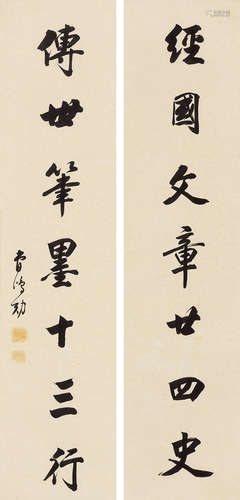 經國文章廿四史
傳世筆墨十三行
曹鴻勛